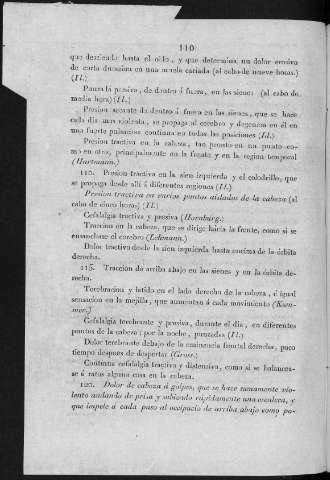 110
que desciende hasta el oido, y que determina un dolor erosivo
de corta duracion en una muela cariada (al cabo de nueve horas.)
(Il.)
Punzada pasiva, de dentro á fuera, en las sienes (al cabo de
media hora) (Il.)
Presion secante de dentro á fuera en las sienes, que se hace
cada dia mas violenta, se propaga al cerebro y degenera en él en
una fuerte pulsacion continua en todas las posiciones (Il.)
Presion tractiva en la cabeza, tan pronto en un punto co-
mo en otro, principalmente en la frente y en la region temporal
(Hartmann.)
110. Presion tractiva en la sien izquierdo y el colodrillo, que
se propaga desde allí á diferentes regiones (Il.)
Presion tractiva en varios puntos aislados de la cabeza (al
cabo de cinco horas) (Il.)
Cefalalgia tractiva y pasiva (Hornburg.)
Traccion en la cabeza, que se dirige hácia la frente, como si se
ensanchase el cerebro (Lehmann.)
Dolor tractivo desde la sien izquierda hasta encima de la órbita
derecha.
115. Traccion de arriba abajo en las sienes y en la órbita de-
recha.
Terebracion y latido en el lado derecho de la cabeza, é igual
sensacion en la mejilla, que aumentan á cada movimiento (Kum-
mer.)
Cefalalgia terebrante y pasiva, durante el dia, en diferentes
puntos de la cabeza; por la noche, punzadas (Il.)
Dolor terebrante debajo de la eminencia frontal derecha, poco
tiempo despues de despertar (Gross.)
Continua cefalalgia tractiva y distensiva, como si se balancea-
se á ratos alguna cosa en la cabeza.
120. Dolor de cabeza á golpes, que se hace sumamente vio-
lento andando de prisa y subiendo rápidamente una escalera, y
que impele á cada paso al occipucio de arriba abajo como po-